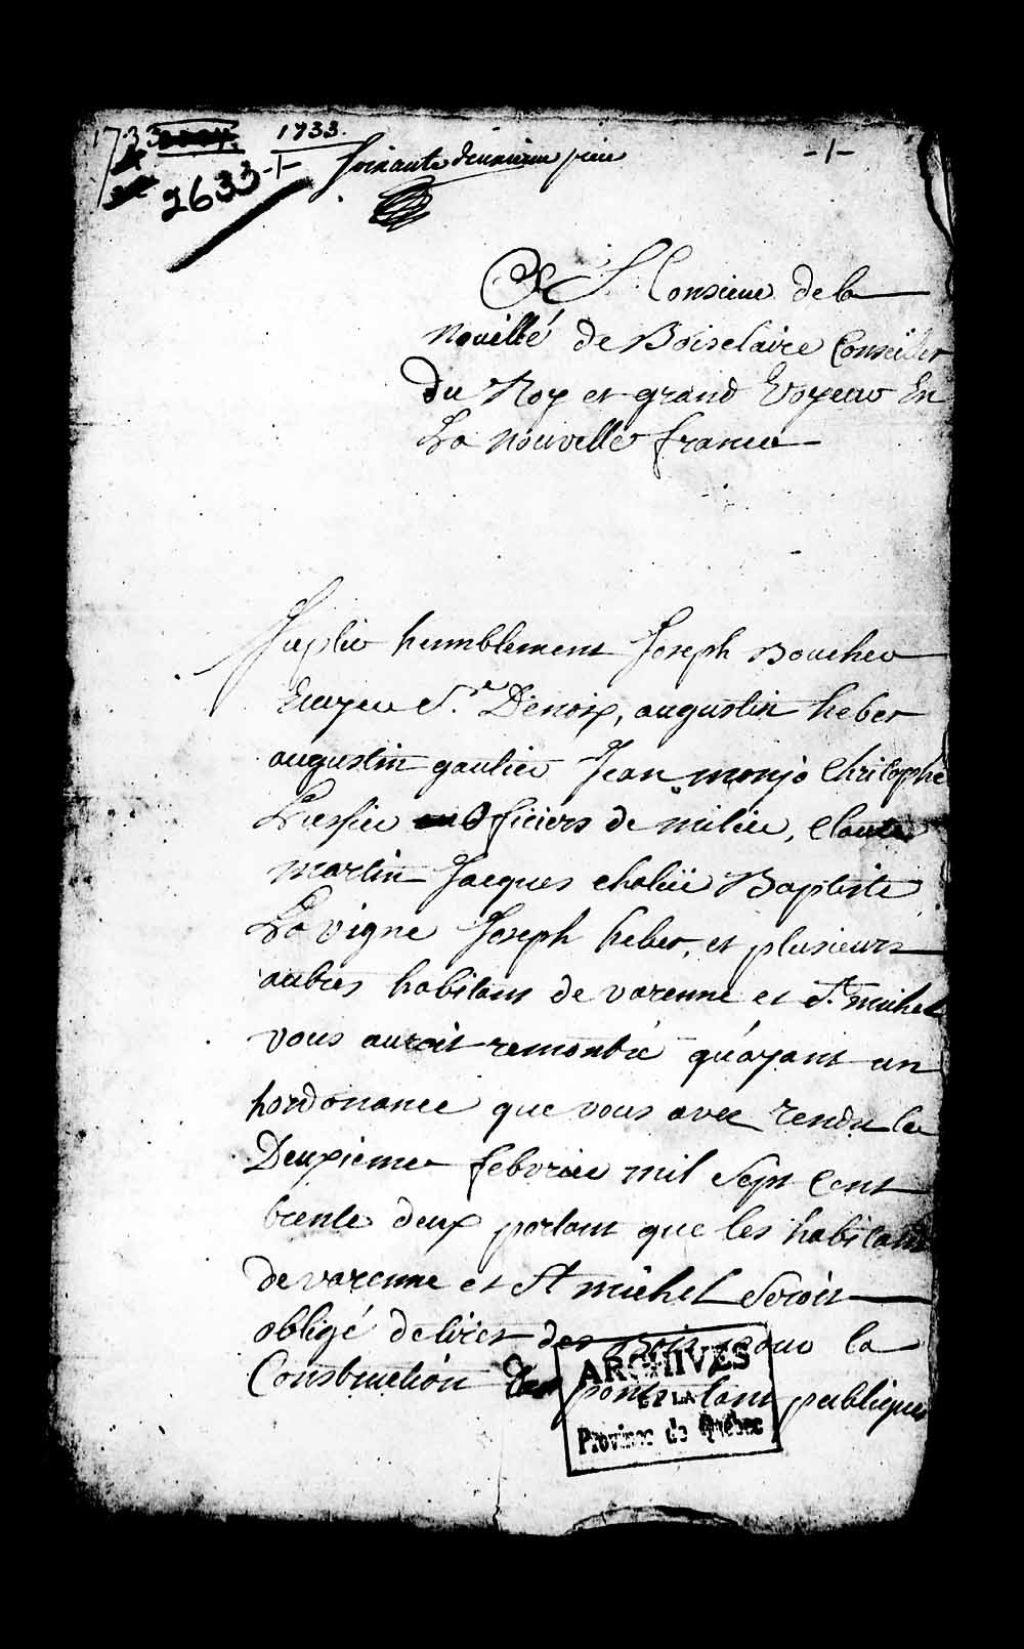 1733
1733.
-1-
2633
Soixante deuxieme piece
-1-
A Monsieur de la
Nouillé de Boisclaire Conseiller
du Roy et grand Voyeur En
La nouvelle france
Suplie humblement Joseph Boucher
Ecuyer Sr. Denoix, augustin heber
augustin gautier Jean monjo Christophe
Lussier officiers de milice, Claude
martin Jacques
Baptiste
La vigne Joseph heber, et plusieurs
autres habitans de varenne et St. michel
vous auroit remontré qu'ayant un
hordonance que vous avez rendu le
Deuxieme febvrier mil sept cent
trente deux portant que les habitans
de varenne et St michel seroit
obligé de tirer des Bois pour la
Construction des ponts tant publiques
ARCHIVES
DE LA
Province de Québec